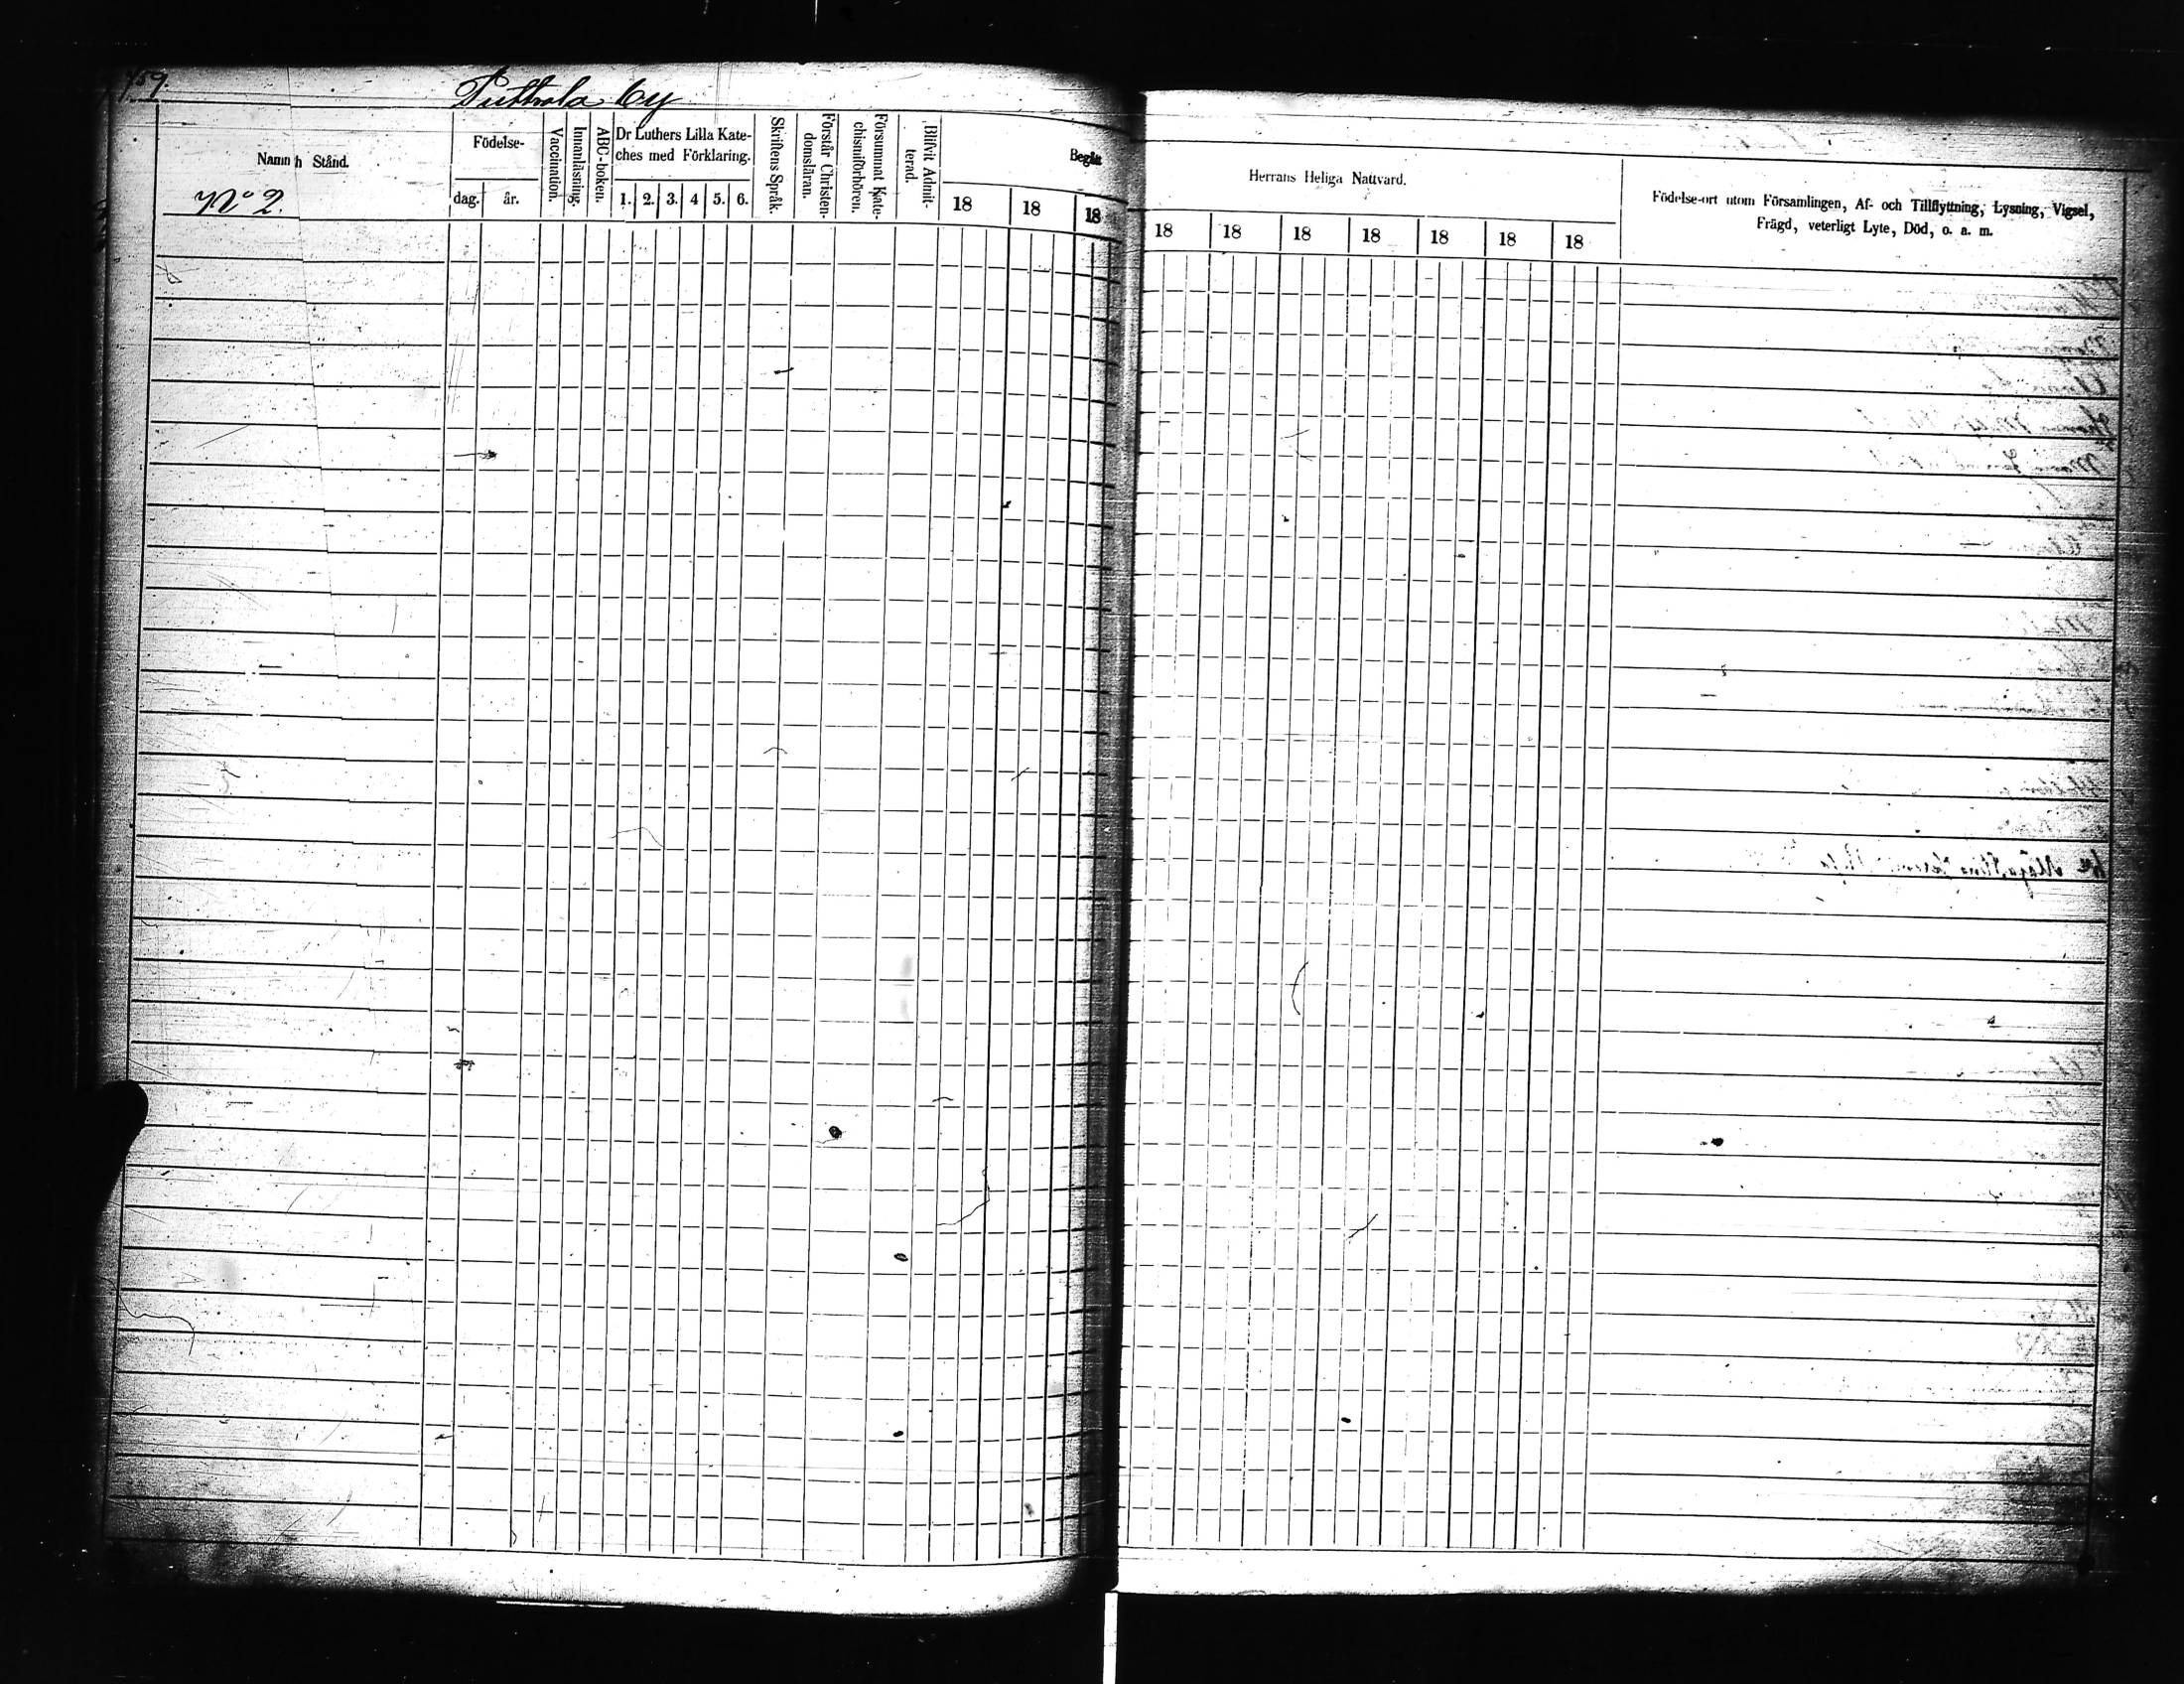 159.
by
Namn h Stånd.
No 2.
Födelse-
dag.
år.
Vaccination.
Innanläsning.
ABC-boken.
Dr Luthers Lilla Kate-
ches med Förklaring.
1. 2. 3. 4 5. 6.
Skriftens Språk.
Förstår Christen-
domsläran.
Försummat Kate-
chismiförhören.
Blifvit Admit-
terad.
Begått
18 18 18
Herrans Heliga Nattvard.
18 18 18 18 18 18 18
Födelse-ort utom Församlingen, Af- och Tillflyttning, Lysning, Vigsel,
Frägd, veterligt Lyte, Död, o. a. m.